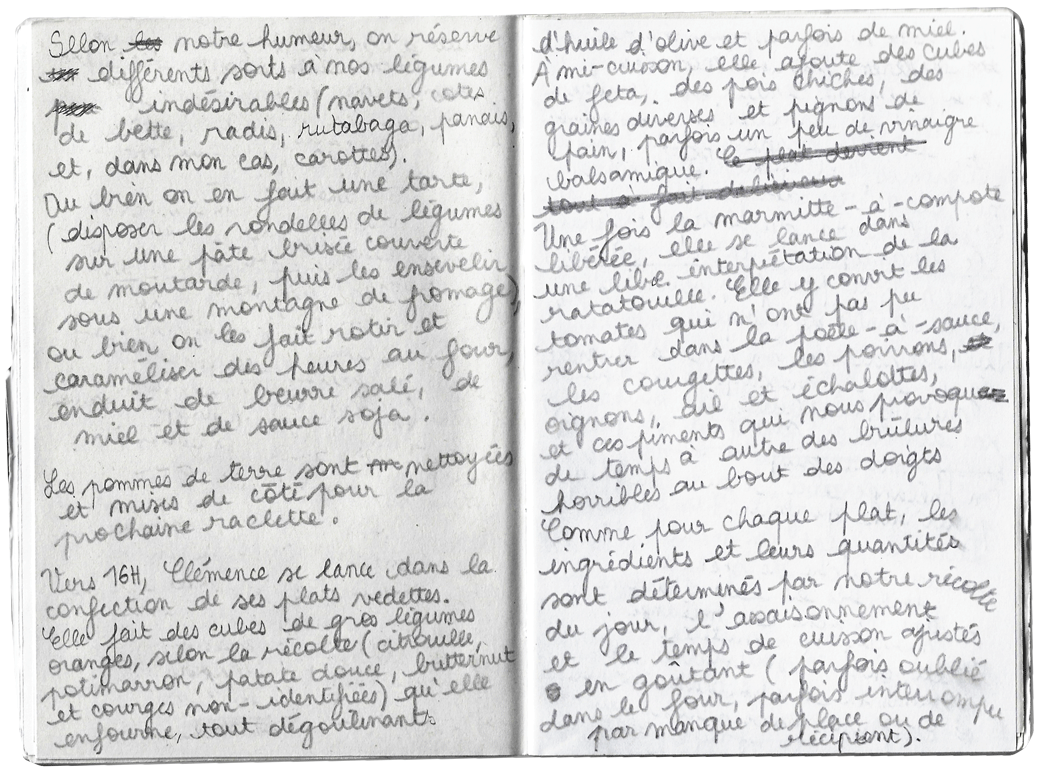 Selon les notre humeur, on réserve
différents sorts à nos légumes
indésirables (navets, cotes
de bette, radis, rutabaga, panais,
et, dans mon cas, carottes).
Ou bien on en fait une tarte,
(disposer les rondelles de légumes
sur une pâte brisée couverte
de moutarde, puis les ensevelir
sous une montagne de fromage),
ou bien on les fait rotir et
caraméliser des heures au four,
enduit de beurre salé, de
miel et de sauce soja.
Les pommes de terre sont nettoyées
et mises de côté pour la
prochaine raclette.
Vers 16H, Clémence se lance dans la
confection de ses plats vedettes.
Elle fait des cubes de gros légumes
oranges, selon la récolte (citrouille,
potimarron, patate douce, butternut
et courges non-identifiées) qu'elle
enfourne, tout dégoulinant
d'huile d'olive et parfois de miel.
À mi-cuisson, elle ajoute des cubes
de feta, des pois chiches, des
graines diverses et pignons de
pain, parfois un peu de vinaigre
balsamique. Le plat devient
tout à fait délicieux
Une fois la marmitte-à-compote
libérée, elle se lance dans
une libre interprétation de la
ratatouille. Elle y convrt les
tomates qui n'ont pas pu
rentrer dans la poêle-à-sauce,
les courgettes, les poivrons,
oignons, ail et échalottes,
et ces piments qui nous provoque
de temps à autre des brûlures
horribles au bout des doigts
Comme pour chaque plat, les
ingrédients et leurs quantités
sont déterminés par notre récolte
du jour, l'assaisonnement
et le temps de cuisson ajustés
en goûtant (parfois oublié
dans le four, parfois interrompu
par manque de place ou de
récipient).